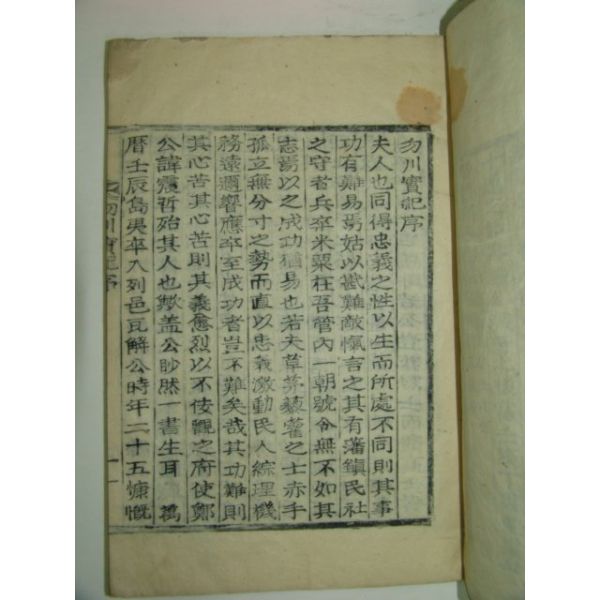 勿川實紀序
夫人也同得忠義之性以生而所處不同則其事
功有難易焉姑以戡難敵愾言之其有藩鎭民社
之守者兵卒米粟在吾管內一朝號令無不如其
志焉以之成功猶易也若夫草茅藜藿之士赤手
孤立無分寸之勢而直以忠義激動民人綜理機
務遠邇響應卒至成功者豈不難矣哉其功難則
其心苦其心苦則其義愈烈以不佞觀之府使鄭
公諱 哲殆其人也歟盖公眇然一書生耳 萬
曆壬辰島夷卒入列邑瓦解公時年二十五慷慨
勿川實紀序 一